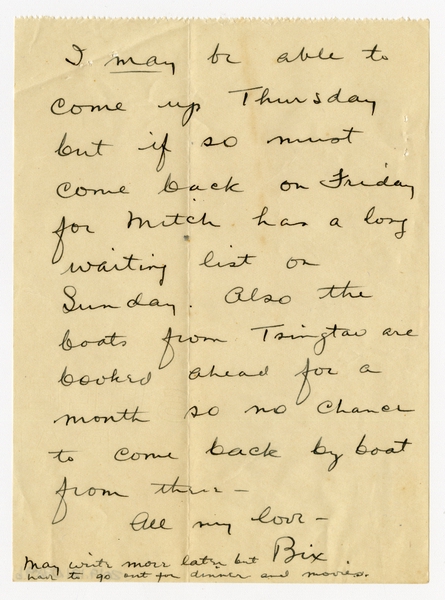 I may be able to
come up Thursday
but if so must
come back on Friday
for Mitch has a long
waiting list on
Sunday. Also the
boats from Tsingtao are
booked ahead for a
month so no chance
to come back by boat
from there -
All my love -
Bix
May write more later but
have to go out for dinner and movies.